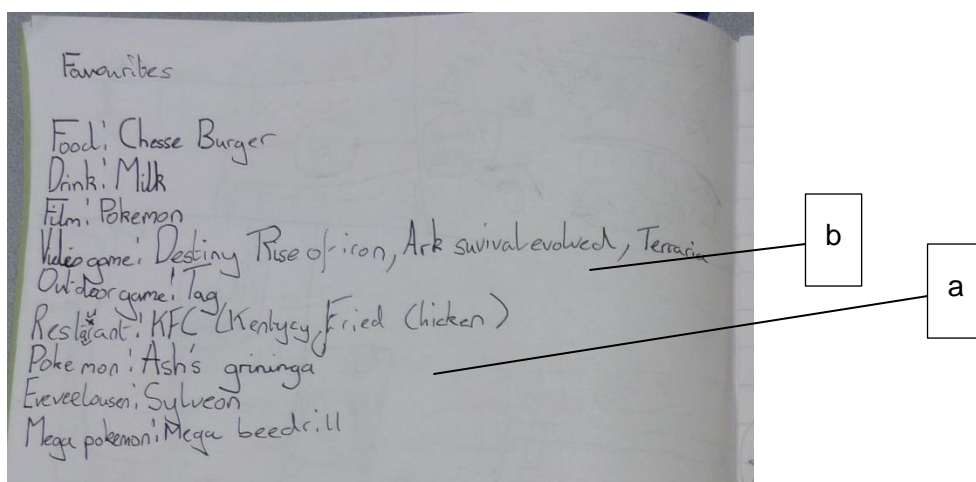 Favourites
Food: Chesse Burger
Drink: Milk
Film: Pokemon
Video game: Destiny Rise of iron, Ark suvival evolved, Terraria
b
Outdoor game: Tag
a
KFC (Kentycy Fried Chicken)
Pokemon: Ash's grininga
Sylveon
Mega pokemon: Mega beedrill